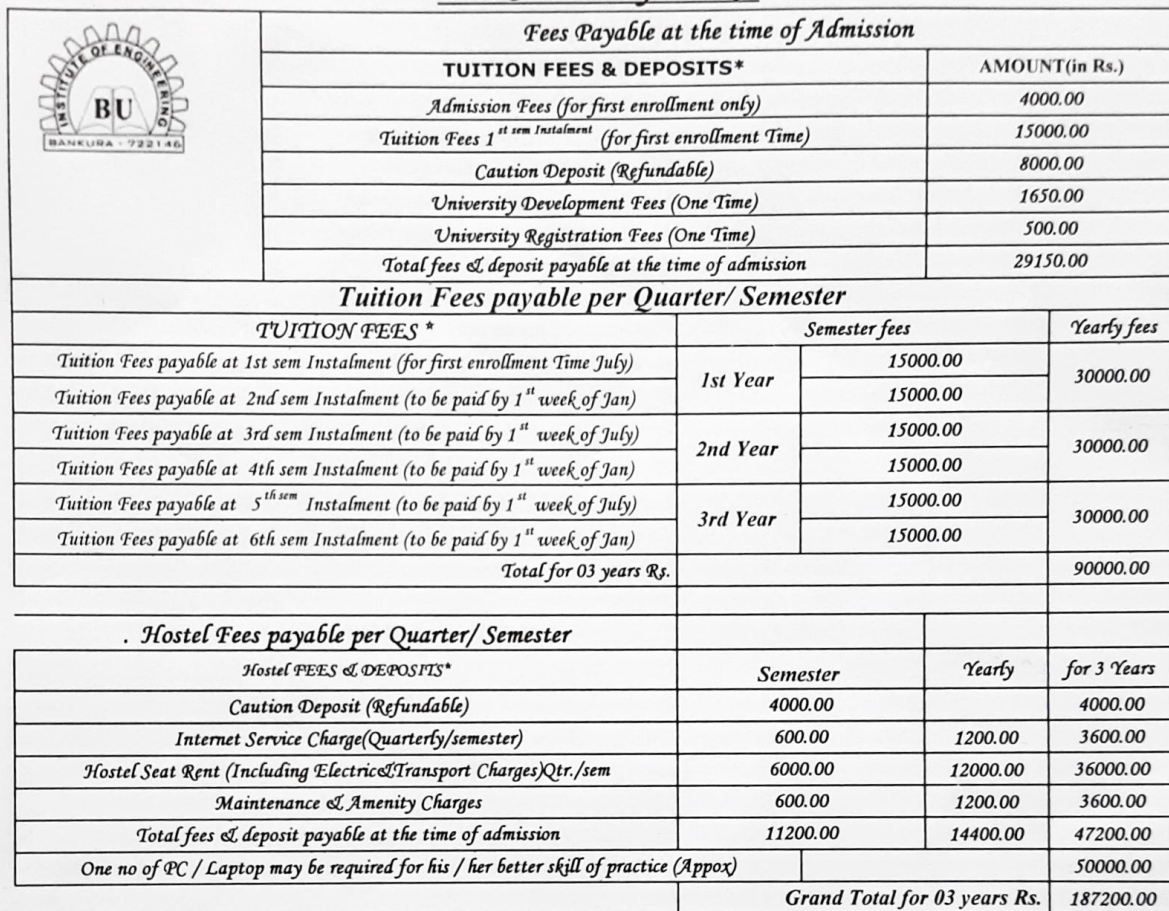 Fees Payable at the time of Admission
INSTITUTE OF ENGINEERING
BU
BANKURA - 722146
TUITION FEES & DEPOSITS* AMOUNT(in Rs.)
Admission Fees (for first enrollment only) 4000.00
Tuition Fees 1st sem Instalment (for first enrollment Time) 15000.00
Caution Deposit (Refundable) 8000.00
University Development Fees (One Time) 1650.00
University Registration Fees (One Time) 500.00
Total fees & deposit payable at the time of admission 29150.00
Tuition Fees payable per Quarter/ Semester
TUITION FEES * Semester fees Yearly fees
Tuition Fees payable at 1st sem Instalment (for first enrollment Time July) 1st Year 15000.00 30000.00
Tuition Fees payable at 2nd sem Instalment (to be paid by 1st week of Jan) 15000.00
Tuition Fees payable at 3rd sem Instalment (to be paid by 1st week of July) 2nd Year 15000.00 30000.00
Tuition Fees payable at 4th sem Instalment (to be paid by 1st week of Jan) 15000.00
Tuition Fees payable at 5th sem Instalment (to be paid by 1st week of July) 3rd Year 15000.00 30000.00
Tuition Fees payable at 6th sem Instalment (to be paid by 1st week of Jan) 15000.00
Total for 03 years Rs. 90000.00
. Hostel Fees payable per Quarter/ Semester
Hostel FEES & DEPOSITS* Semester Yearly for 3 Years
Caution Deposit (Refundable) 4000.00 4000.00
Internet Service Charge(Quarterly/semester) 600.00 1200.00 3600.00
Hostel Seat Rent (Including Electric&Transport Charges)Qtr./sem 6000.00 12000.00 36000.00
Maintenance & Amenity Charges 600.00 1200.00 3600.00
Total fees & deposit payable at the time of admission 11200.00 14400.00 47200.00
One no of PC / Laptop may be required for his / her better skill of practice (Appox) 50000.00
Grand Total for 03 years Rs. 187200.00